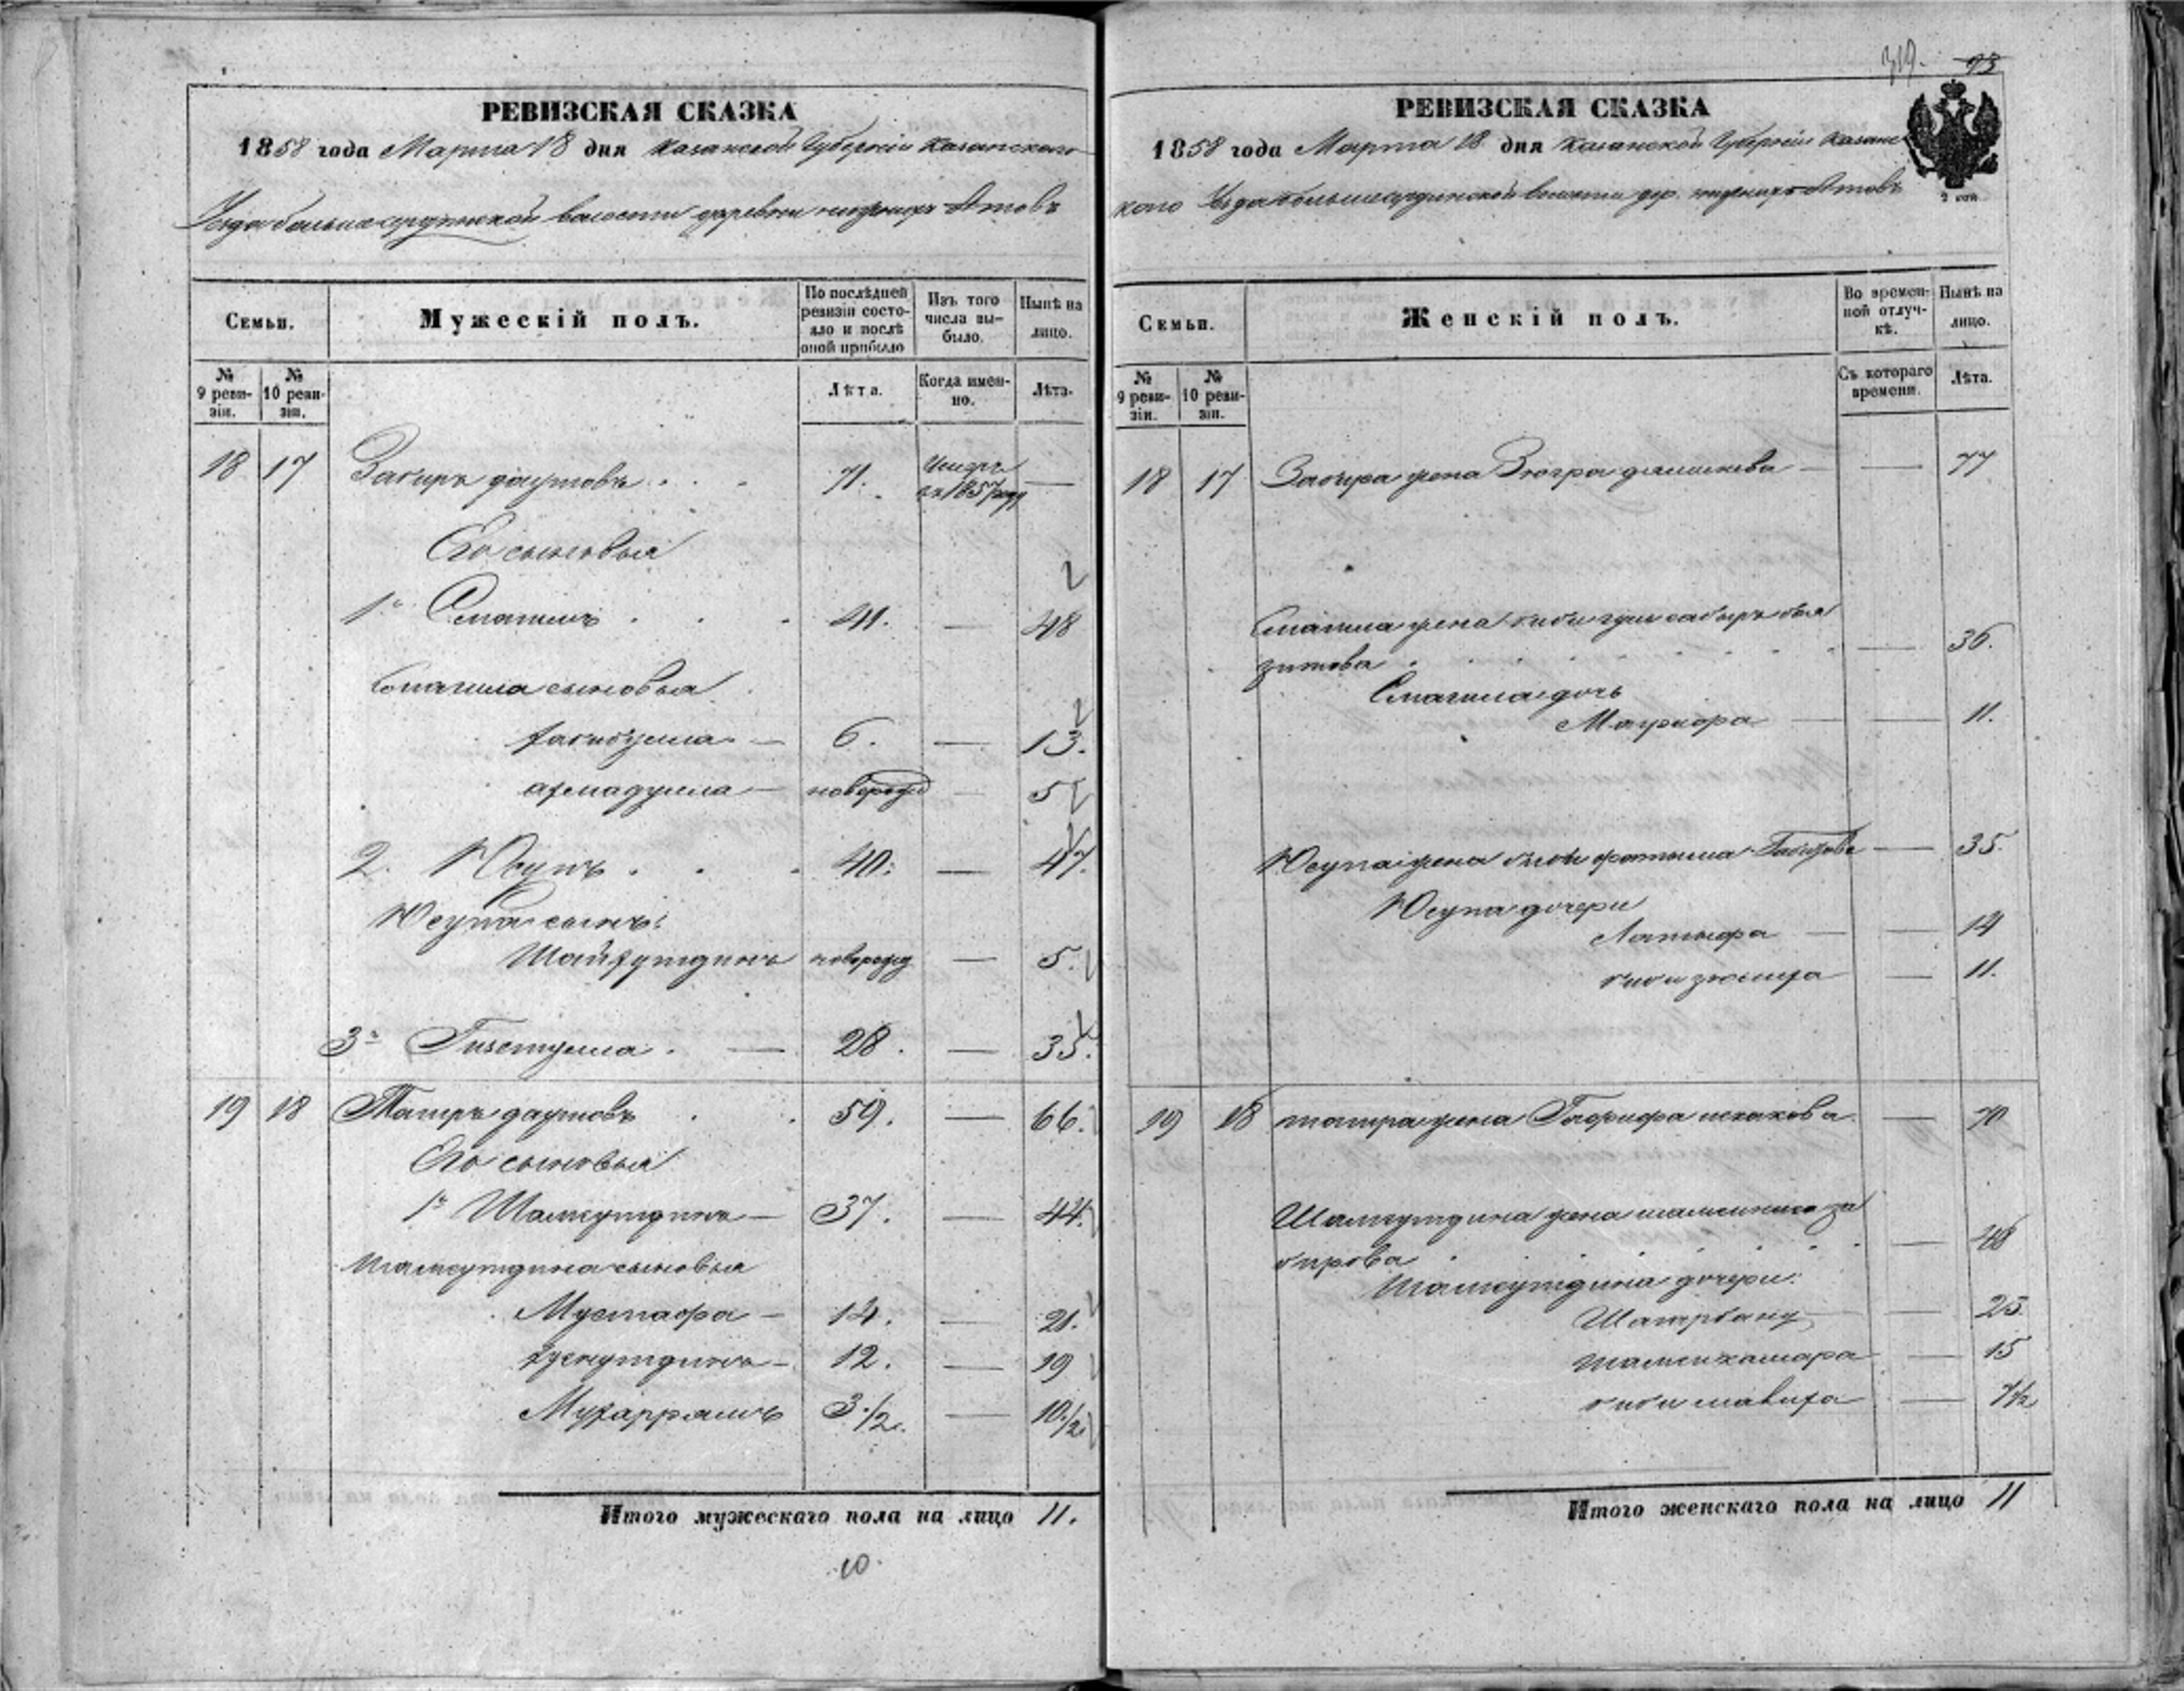 РЕВИЗСКАЯ СКАЗКА
1858 года Марта 18 дня Казанской Губернiи Казанскаго
Уезда волости деревни Атовъ
Семьи.
Мужескiй полъ.
По послѣдней ревизiи состояло и послѣ оной прибыло
Изъ того числа выбыло.
Нынѣ на лицо.
№ 9 ревизiи.
№ 10 ревизiи.
Лѣта.
Когда именно.
Лѣта.
18 17 Закиръ даутовъ 71. въ 1857 году —
Его сыновья
1й Смагилъ 41. — 48
Смагила сыновья
6. — 13.
ахмадулла — новорожд — 5
2. Юсупъ 40. — 47.
Юсупа сынъ:
Шайхутдинъ новорожд — 5.
3й 28. — 35.
19 18 Таиръ даутовъ 59. — 66.
Его сыновья
1й Шамсутдинъ — 37. — 44.
Шамсутдина сыновья
Мустафа — 14. — 21.
хуснутдинъ — 12. — 19
Мухаррямъ 3 1/2. — 10 1/2
Итого мужескаго пола на лицо 11.
10.
319. 93
РЕВИЗСКАЯ СКАЗКА
1858 года Марта 18 дня Казанской Губернiи Казанс
кого Уезда волости дер. Атовъ
Семьи.
Женскiй полъ.
Во временной отлучкѣ.
Нынѣ на лицо.
№ 9 ревизiи.
№ 10 ревизiи.
Съ котораго времени.
Лѣта.
18 17 жена — 77
Смагила жена
зитова — 36.
Смагила дочь
— 11.
Юсупа жена биби фатыма — 35.
Юсупа дочери
Латыфа — 14
биби — 11.
19 18 таира жена исхакова — 70
Шамсутдина жена за
бирова — 46
Шамсутдина дочери:
Шагарбану — 23.
шамсикамара — 15
биби — 7 1/2
Итого женскаго пола на лицо 11